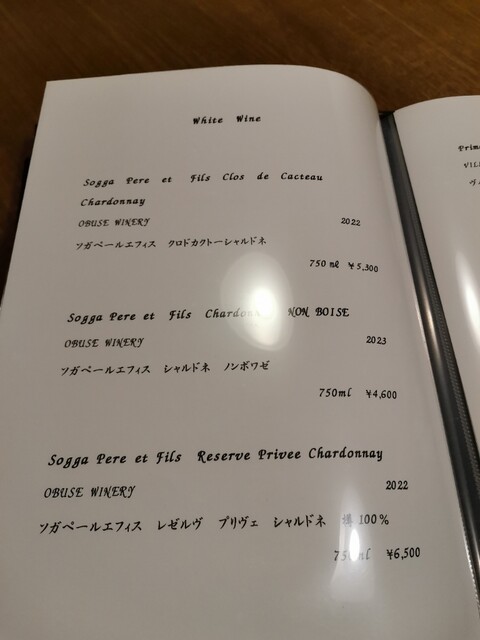 White Wine
Sogga Pere et Fils Clos de Cacteau
Chardonnay
OBUSE WINERY 2022
ツガペールエフィス クロドカクトーシャルドネ
750 ml ¥5,300
Sogga Pere et Fils NON BOISE
OBUSE WINERY 2023
ツガペールエフィス シャルドネ ノンボワゼ
750ml ¥4,600
Sogga Pere et Fils Reserve Privee Chardonnay
OBUSE WINERY 2022
ツガペールエフィス レゼルヴ プリヴェ シャルドネ 100%
¥6,500